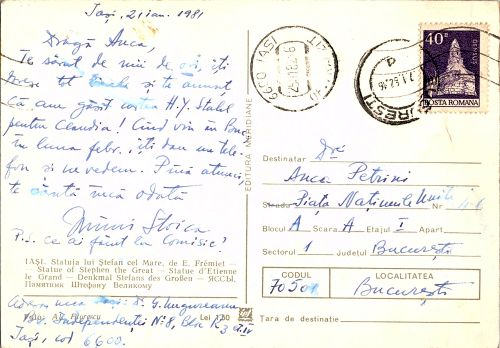 Iași, 21 ian. 1981
Dragă Anca,
Te sărut de mii de ori, îți
doresc tot binele și te anunț
că am găsit cartea H. H. Stahl
pentru Claudia! Când vin în Buc.
în luna febr., îți dau un tele-
fon și ne vedem. Până atunci,
te sărută încă odată
Stoica
P.S. ce ai făcut la Comisie?
IAȘI. Statuia lui Ștefan cel Mare, de E. Frémiet —
— Statue of Stephen the Great — Statue d'Etienne
le Grand — Denkmal Stefans des Großen — ЯССЫ.
Памятник Штефану Великому
Foto: A. Florescu Lei 1,60
Adresa mea: G. Ungureanu
Independenței Nº 8, Bloc
Iași, cod 6600
EDITURA MERIDIANE
6600 IAȘI
BUCUREȘTI
40 B
POSTA ROMANA
Destinatar Dră
Anca Petrini
Strada Piața Națiunile Unite Nr.
Blocul A Scara A Etajul I Apart.
Sectorul 1 Județul București
CODUL LOCALITATEA
70501 București
Țara de destinație